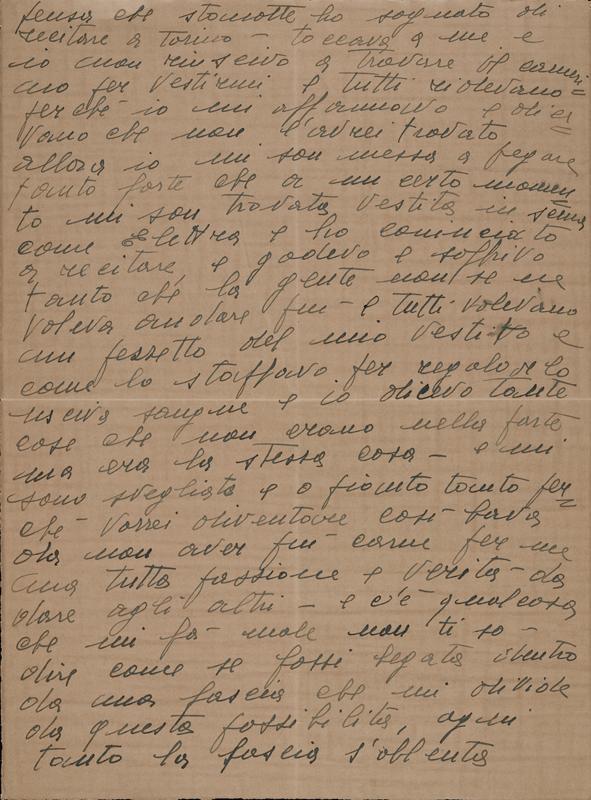 pensa che stanotte ho sognato di
recitare a Torino – toccava a me e
io non riuscivo a trovare il cameri=
no per vestirmi e tutti ridevano
perché io mi affannavo e dice=
vano che non l'avrei trovato
allora io mi son messa a pregare
tanto forte che a un certo momen
to mi son trovata vestita in scena
come Elettra e ho cominciato
a recitare, e godevo e soffrivo
tanto che la gente non se ne
voleva andare più – e tutti volevano
un pezzetto del mio vestito e
come lo strappavo per regalarlo
usciva sangue e io dicevo tante
cose che non erano nella parte
ma era la stessa cosa – e mi
sono svegliata e o pianto tanto per=
ché vorrei diventare così brava
da non aver più carne per me
ma tutta passione e verità – da
dare agli altri – e c'è qualcosa
che mi fa male non ti so –
dire come se fossi legata dentro
da una fascia che mi divide
da questa possibilità, ogni
tanto la fascia s'allenta